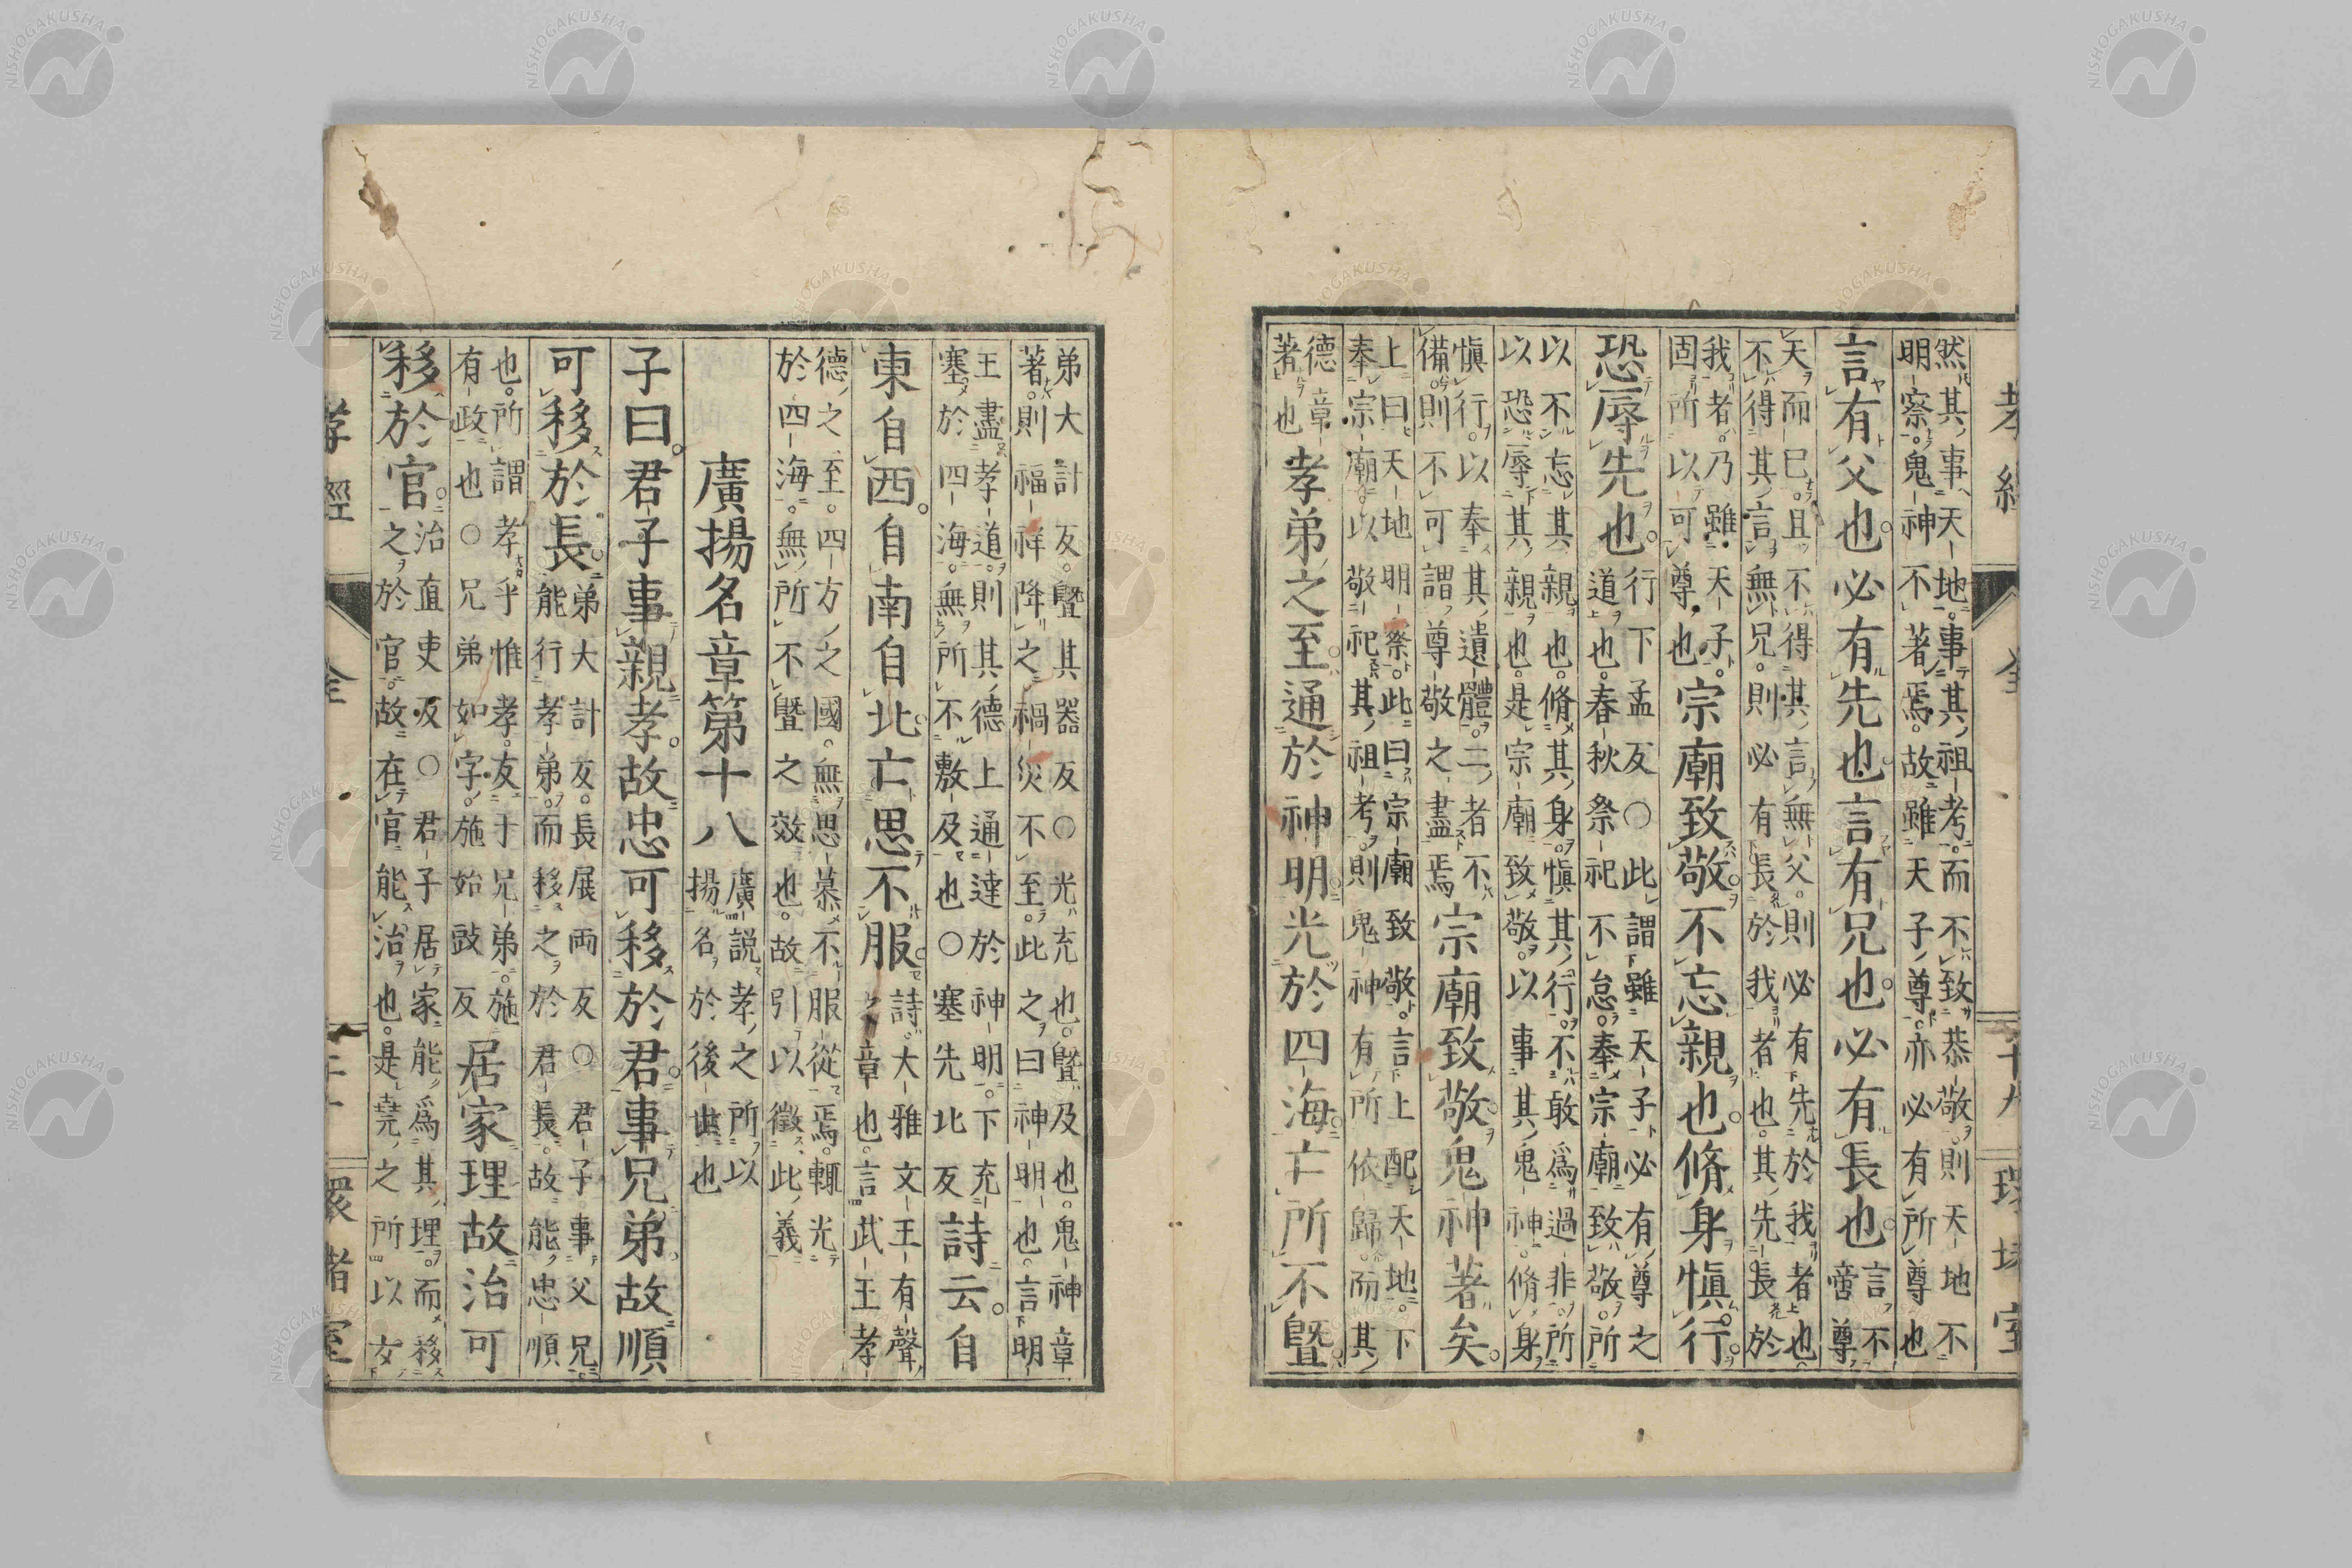 孝經 全 十九 環堵室
然其事天地。事其祖考。而不致恭敬。則天地不
明察。鬼神不著焉。故雖天子尊。亦必有所尊也
言有父也。必有先也。言有兄也。必有長也。
言不
啻尊
天而已。且不得其言無父。則必有先於我者也
不得其言無兄。則必有長於我者也。其先長於
我者。乃雖天子。
固所以可尊也
宗廟致敬。不忘親也。脩身慎行。
恐辱先也。
行下孟反○此謂雖天子必有尊之
道也。春秋祭祀不怠。奉宗廟致敬。所
以不忘其親也。脩其身。慎其行。不敢爲過非。所
以恐辱其親也。是宗廟致敬。以事其鬼神。脩身
愼行。以奉其遺體。二者不
備。則不可謂尊敬之盡焉
宗廟致敬。鬼神著矣。
上曰天地明察。此曰宗廟致敬。言上配天地。下
奉宗廟。以敬祀其祖考。則鬼神有所依歸。而其
德章
著也
孝弟之至。通於神明。光於四海。亡所不曁。
弟大計反。曁其器反○光充也。曁及也。鬼神章
著。則福祥降之。禍災不至。此之曰神明也。言明
王盡孝道。則其德上通達於神明。下充
塞於四海。無所不敷及也○塞先北反
詩云。自
東自西。自南自北。亡思不服。
詩大雅文王有聲
之章也。言武王孝
德之至。四方之國。無思慕不服從焉。輒光
於四海。無所不曁之效也。故引以徵此義
廣揚名章第十八
廣説孝之所以
揚名於後世也
子曰。君子事親孝。故忠可移於君。事兄弟。故順
可移於長。
弟大計反。長展兩反○君子事父兄
能行孝弟。而移之於君長。故能忠順
也。所謂孝乎惟孝。友于兄弟。施
有政也○兄弟如字。施始豉反
居家理。故治可
移於官。
治直吏反○君子居家能爲其理。而移
之於官。故在官能治也。是堯之所以女
孝經 全 二十 環堵室